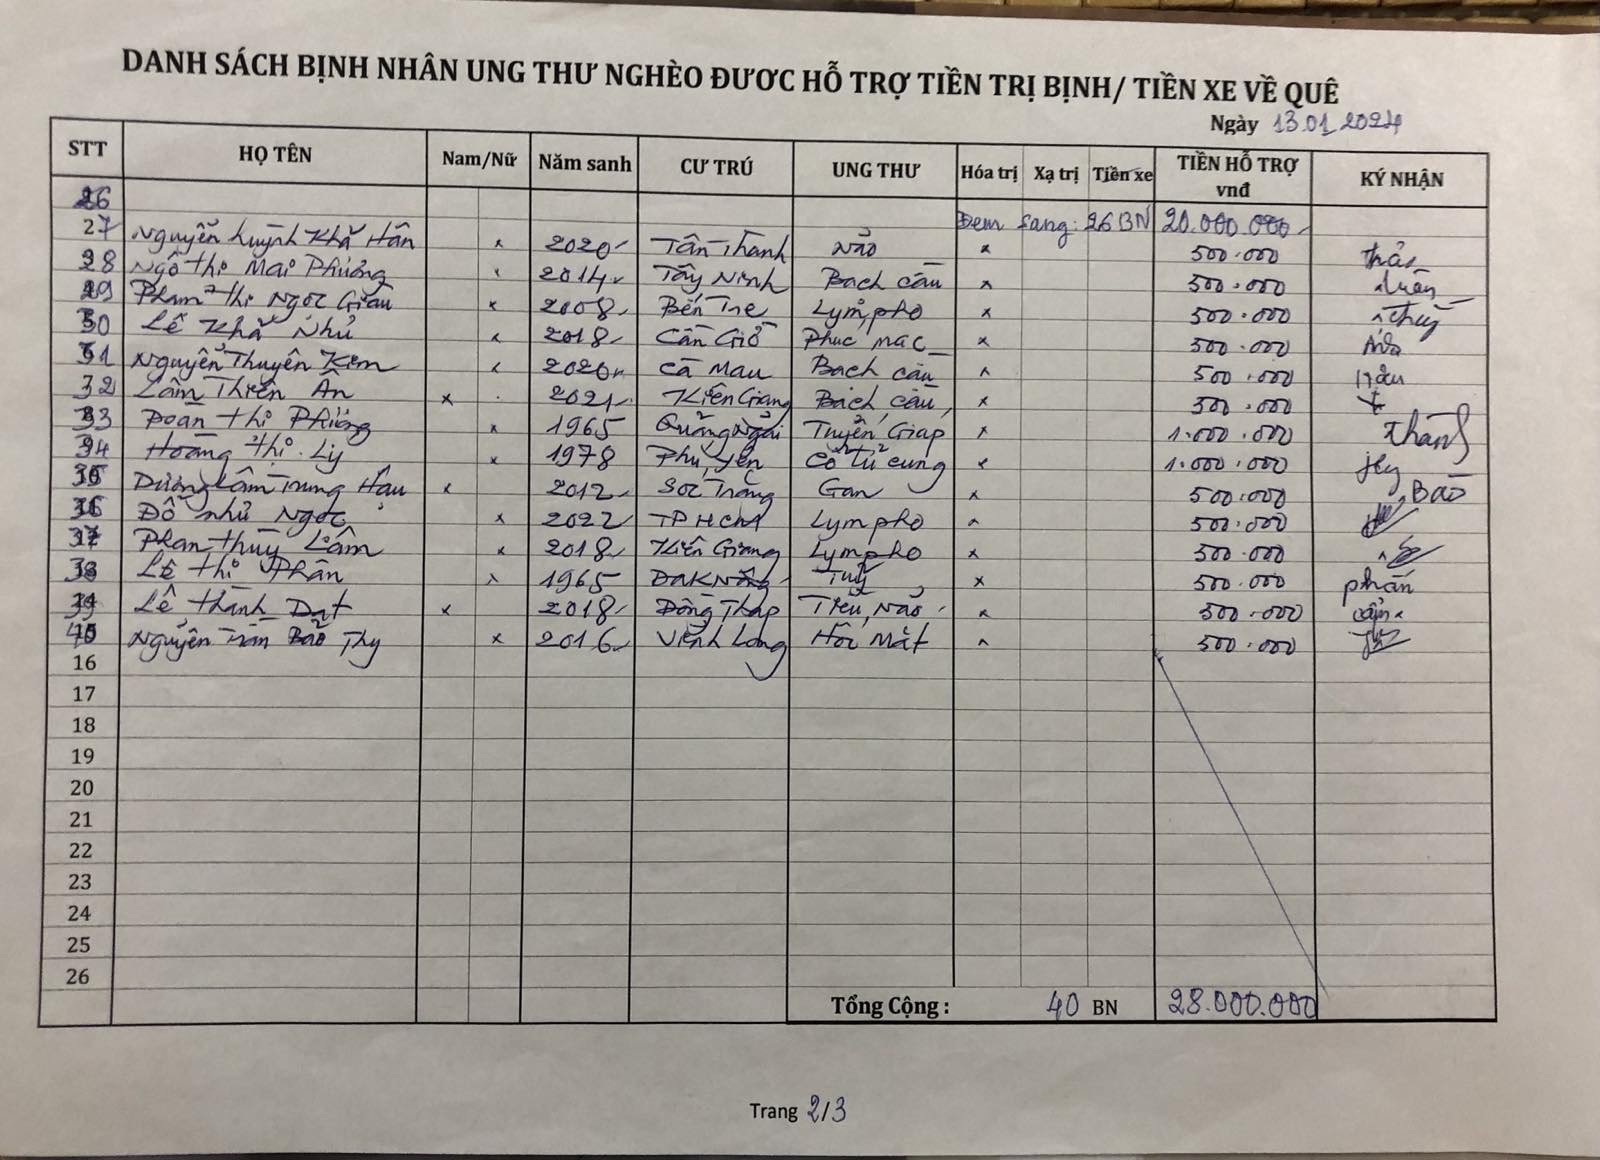 DANH SÁCH BỊNH NHÂN UNG THƯ NGHÈO ĐƯƠC HỖ TRỢ TIỀN TRỊ BỊNH/ TIỀN XE VỀ QUÊ
Ngày 13.01.2024
STT HỌ TÊN Nam/Nữ Năm sanh CƯ TRÚ UNG THƯ Hóa trị Xạ trị Tiền xe TIỀN HỖ TRỢ vnđ KÝ NHẬN
26 Đem sang: 26 BN 20.000.000
27 Nguyễn Huỳnh Khả Hân x 2020 Tân Thanh Não x 500.000 thảo
28 Ngô Thị Mai Phương x 2014 Tây Ninh Bạch cầu x 500.000
29 Phạm Thị Ngọc Giàu x 2008 Bến Tre Lympho x 500.000 Thuý
30 Lê Khả Như x 2018 Cần Giờ Phúc mạc x 500.000
31 Nguyễn Thuyên Kim x 2020 Cà Mau Bạch cầu x 500.000
32 Lâm Thiên Ân x 2021 Kiên Giang Bạch cầu x 500.000
33 Đoàn Thị Phương x 1965 Quảng Ngãi Tuyến Giáp x 1.000.000
34 Hoàng Thị Lý x 1978 Phú Yên Cổ tử cung x 1.000.000
35 Dương Lâm Trung Hậu x 2012 Sóc Trăng Gan x 500.000 Bảo
36 Đỗ Như Ngọc x 2022 TP HCM Lympho x 500.000
37 Phan Thùy Lâm x 2018 Kiên Giang Lympho x 500.000
38 Lê Thị Phấn x 1965 Đak Nông Tuỷ x 500.000 phấn
39 Lê Thành Đạt x 2018 Đồng Tháp Tiểu Não x 500.000
40 Nguyễn Trần Bảo Thy x 2016 Vĩnh Long Hốc Mắt x 500.000
16
17
18
19
20
21
22
23
24
25
26
Tổng Cộng : 40 BN 28.000.000
Trang 2/3